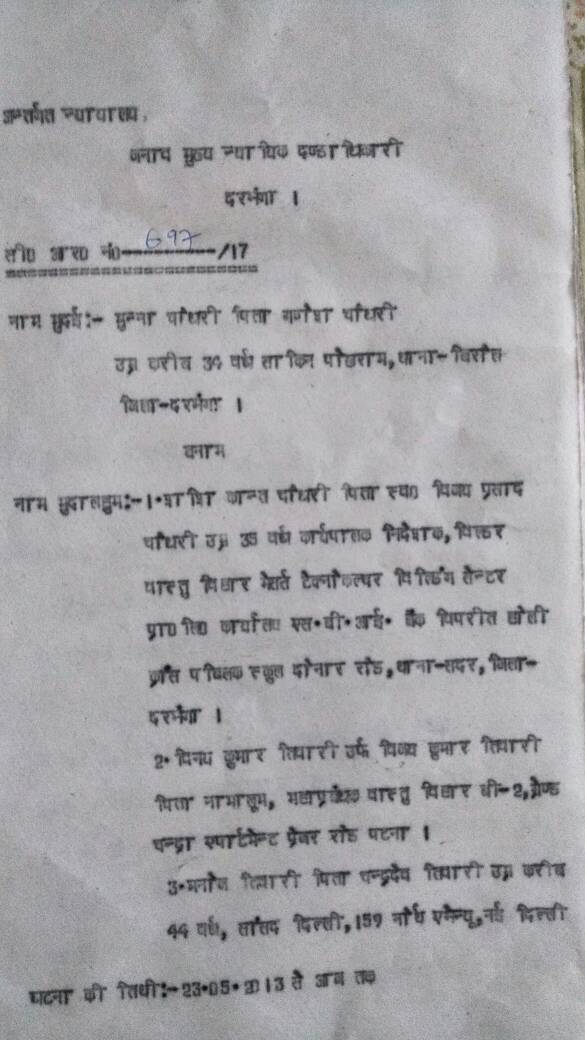 अन्तर्गत न्यायालय,
जनाब मुख्य न्यायिक दण्डाधिकारी
दरभंगा ।
सी0 आर0 नं0-- 697 --/17
नाम मुदई:- मुन्ना चौधरी पिता गणेश चौधरी
उम्र करीब 34 वर्ष साकिन पोखराम, थाना-बिरौल
जिला-दरभंगा ।
बनाम
नाम मुदालहुम:-1•शशि कान्त चौधरी पिता स्व0 विजय प्रसाद
चौधरी उम्र 35 वर्ष कार्यपालक निदेशक,
वास्तु विहार मेसर्स टेक्नोकल्चर बिल्डिंग सेन्टर
प्रा0 लि0 कार्यालय एस•बी•आई• बैंक विपरीत होली
क्रॉस पब्लिक स्कूल दोनार रोड, थाना-सदर, जिला-
दरभंगा ।
2• विनय कुमार तिवारी उर्फ विजय कुमार तिवारी
पिता नामालूम, महाप्रबंधक वास्तु विहार बी-2, ग्रैण्ड
चन्द्रा एपार्टमेन्ट फ्रेजर रोड पटना ।
3•मनोज तिवारी पिता चन्द्रदेव तिवारी उम्र करीब
44 वर्ष, सांसद दिल्ली, 159 नौर्थ एभेन्यू, नई दिल्ली
घटना की तिथी:-23•05•2013 से आज तक